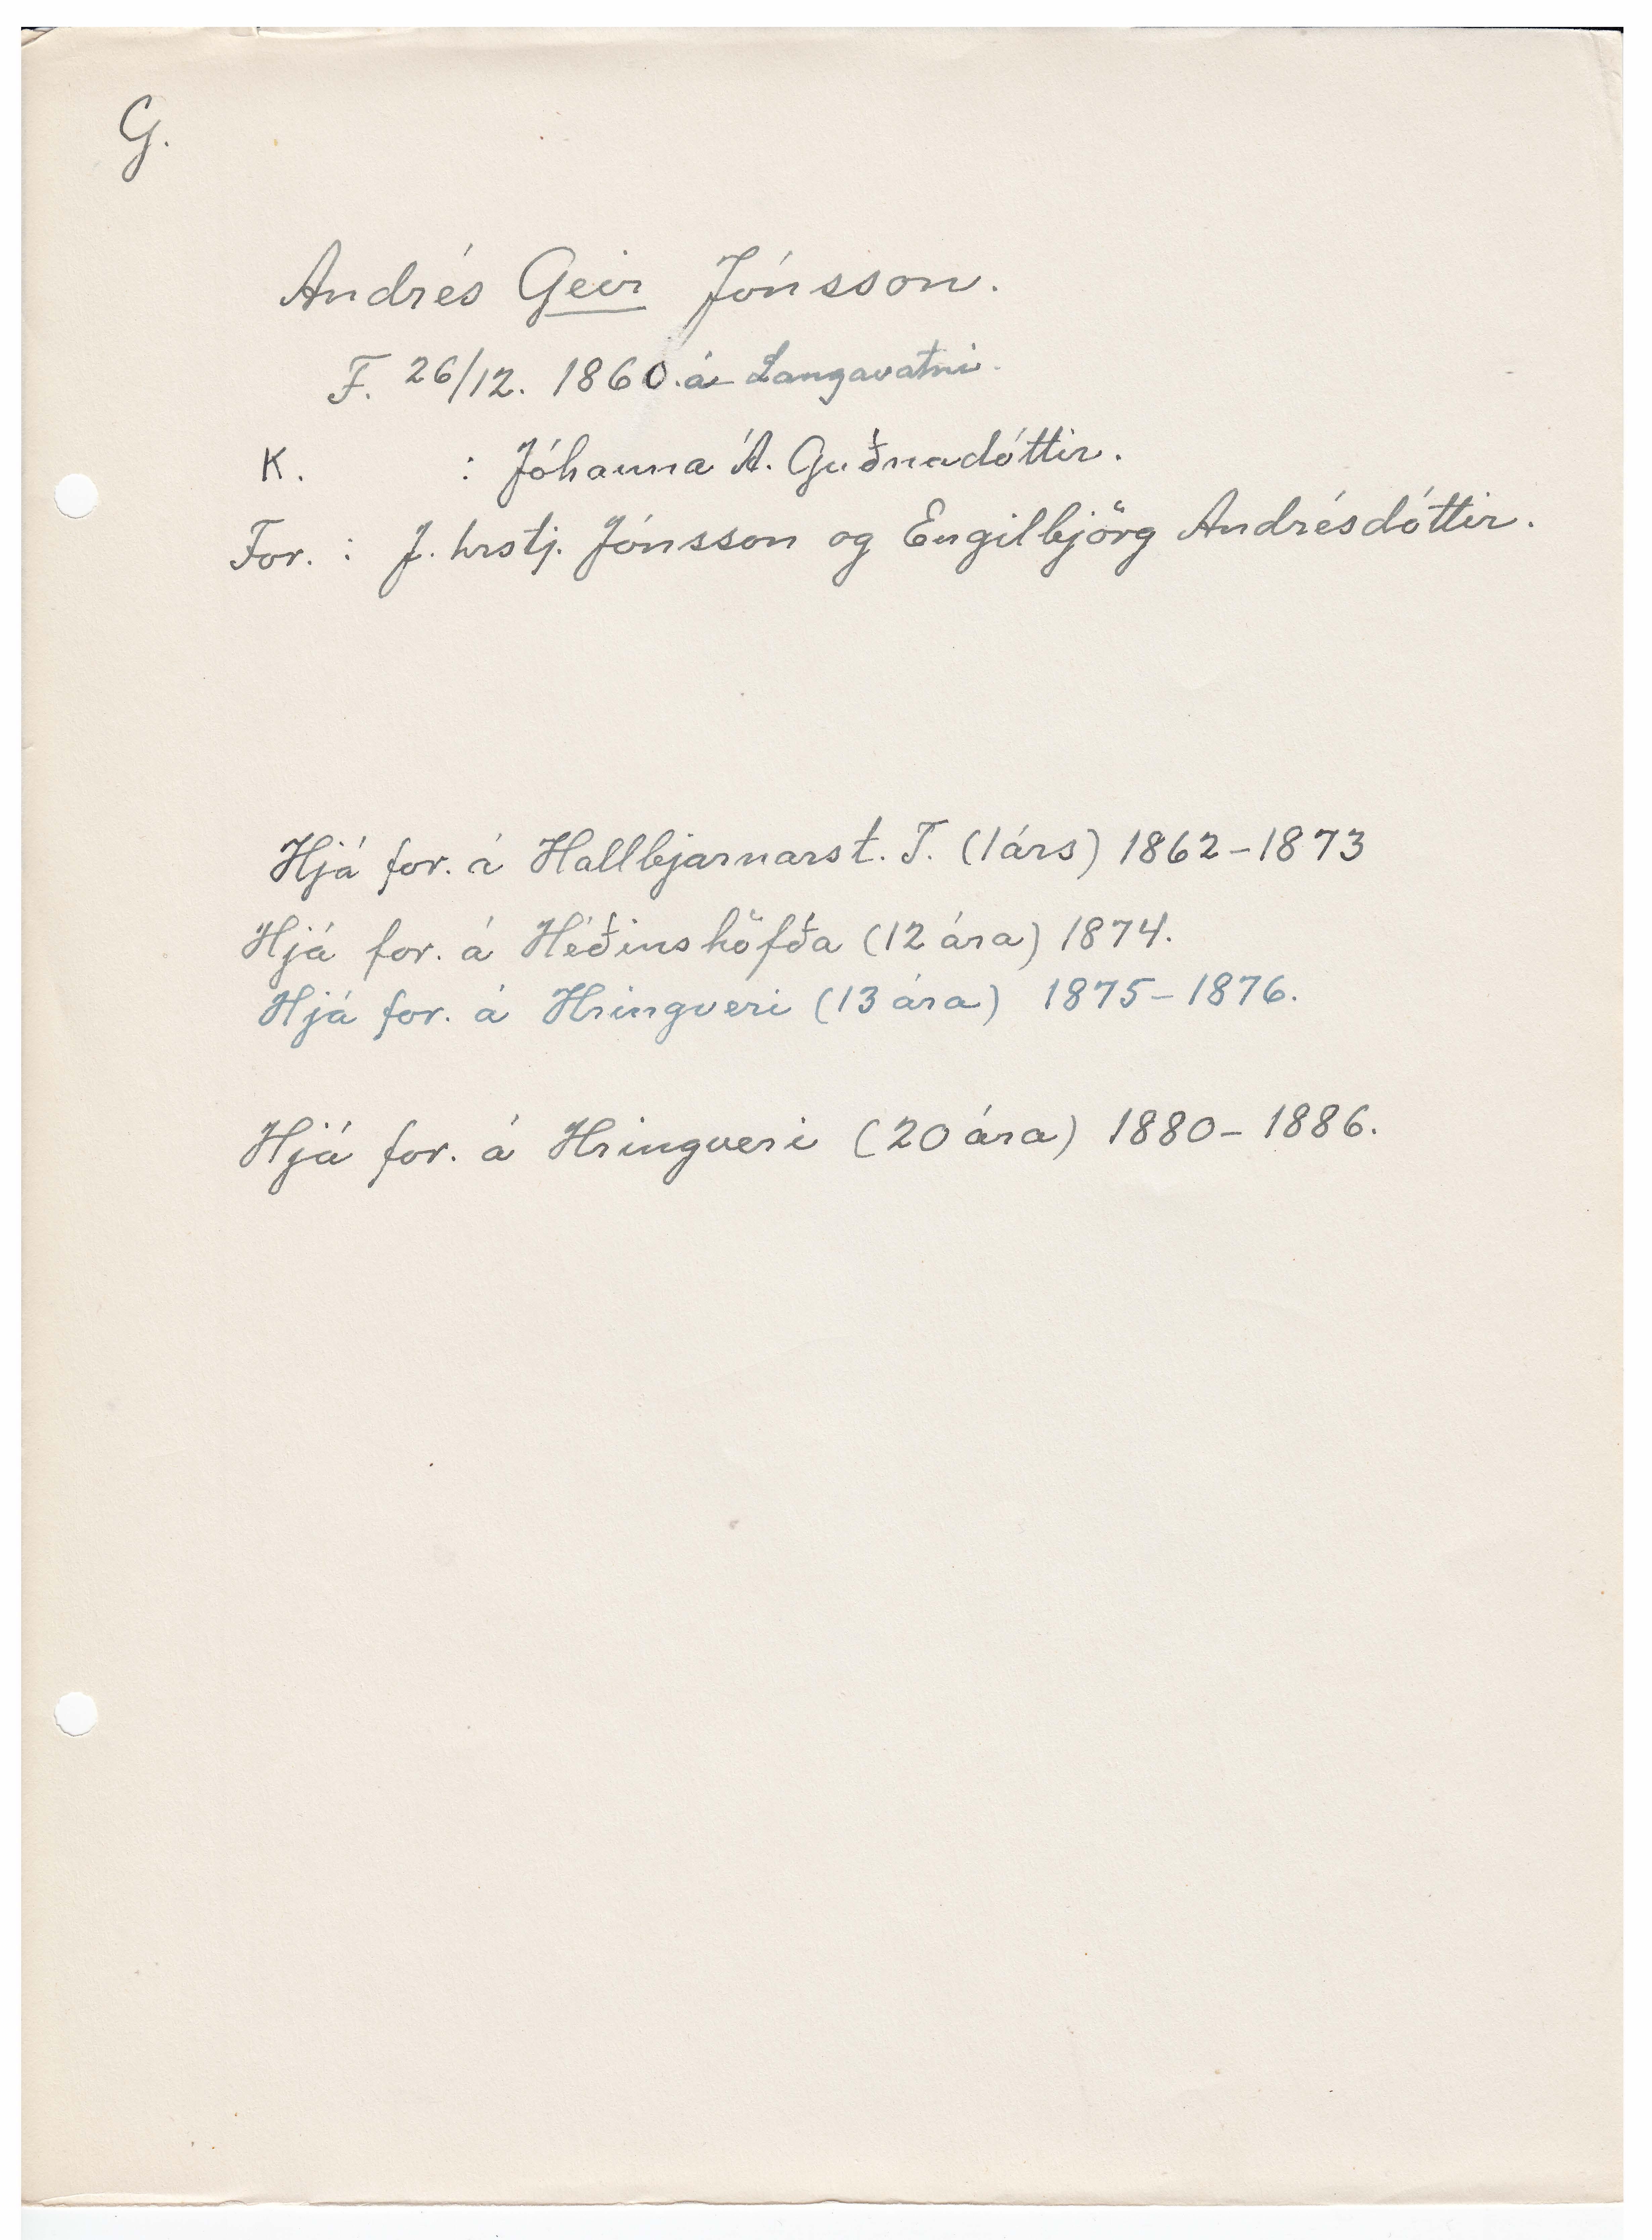 G.
Andrés Geir Jónsson.
F. 26/12. 1860. á Langavatni.
K. : Jóhanna Á. Guðnadóttir.
For. : J. hrstj. Jónsson og Engilbjörg Andrésdóttir.
Hjá for. á Hallbjarnarst. T. (1árs) 1862-1873
Hjá for. á Héðinshöfða (12 ára) 1874.
Hjá for. á Hringveri (13 ára) 1875-1876.
Hjá for. á Hringveri (20 ára) 1880-1886.